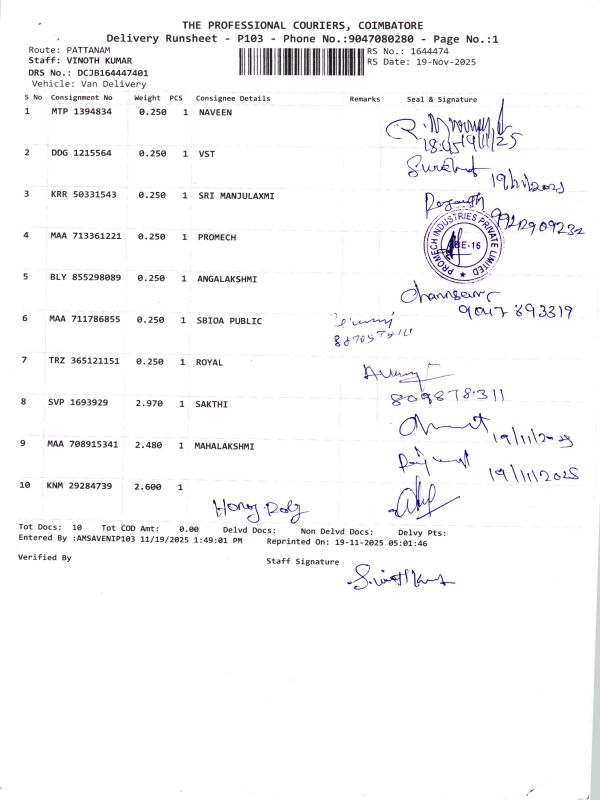 THE PROFESSIONAL COURIERS, COIMBATORE
Delivery Runsheet - P103 - Phone No.:9047080280 - Page No.:1
Route: PATTANAM RS No.: 1644474
Staff: VINOTH KUMAR RS Date: 19-Nov-2025
DRS No.: DCJB164447401
Vehicle: Van Delivery
S No Consignment No Weight PCS Consignee Details Remarks Seal & Signature
1 MTP 1394834 0.250 1 NAVEEN
18:45 19/11/25
2 DDG 1215564 0.250 1 VST
19/11/2025
3 KRR 50331543 0.250 1 SRI MANJULAXMI
4 MAA 713361221 0.250 1 PROMECH
PROMECH INDUSTRIES PRIVATE LIMITED
5 BLY 855298089 0.250 1 ANGALAKSHMI
6 MAA 711786855 0.250 1 SBIOA PUBLIC
7 TRZ 365121151 0.250 1 ROYAL
8 SVP 1693929 2.970 1 SAKTHI
19/11/2025
9 MAA 708915341 2.480 1 MAHALAKSHMI
19/11/2025
10 KNM 29284739 2.600 1
Tot Docs: 10 Tot COD Amt: 0.00 Delvd Docs: Non Delvd Docs: Delvy Pts:
Entered By :AMSAVENIP103 11/19/2025 1:49:01 PM Reprinted On: 19-11-2025 05:01:46
Verified By Staff Signature